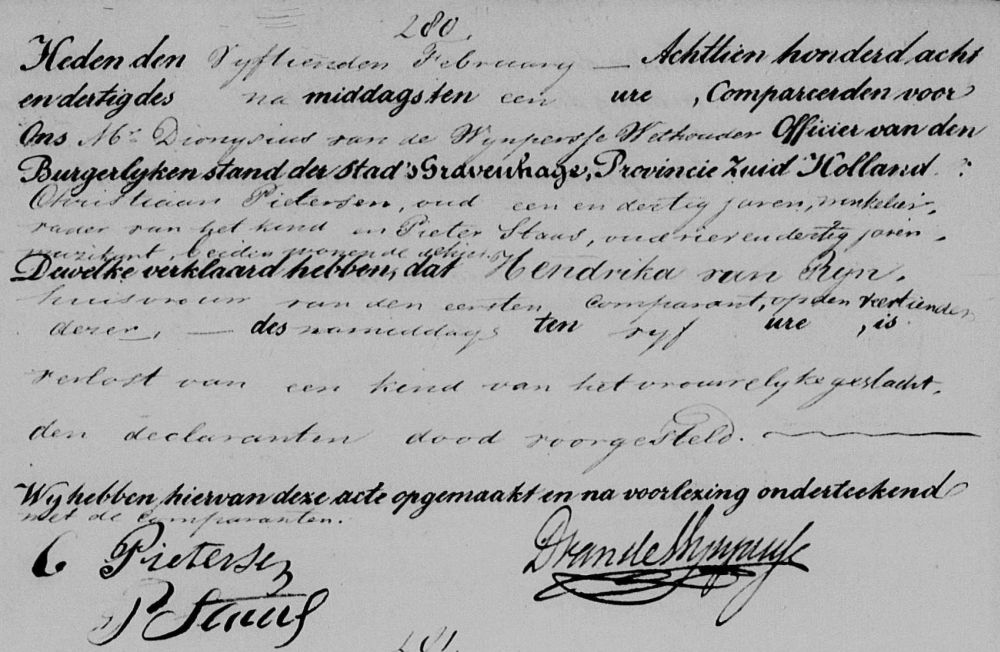 280.
Heden den Vyftienden February — Achttien honderd acht
en dertig des na middags ten een ure, Compareerden voor
Ons Mr. Dionysius van de Wynpersse Wethouder Officier van den
Burgerlyken stand der Stad 's Gravenhage, Provincie Zuid Holland:
Christiaan Pietersen, oud een en dertig jaren, winkelier,
vader van het kind en Pieter Staas, oud vier en dertig jaren,
muzikant, beiden wonende alhier.
Dewelke verklaard hebben, dat Hendrika van Ryn,
huisvrouw van den eersten Comparant, op den veertienden
dezer, — des namiddags ten vyf ure, is
verlost van een kind van het vrouwelyke geslacht,
den declaranten dood voorgesteld.
Wy hebben hiervan deze acte opgemaakt en na voorlezing onderteekend
met de Comparanten.
C Pietersen
D van de Wynpersse
P Staas
281.